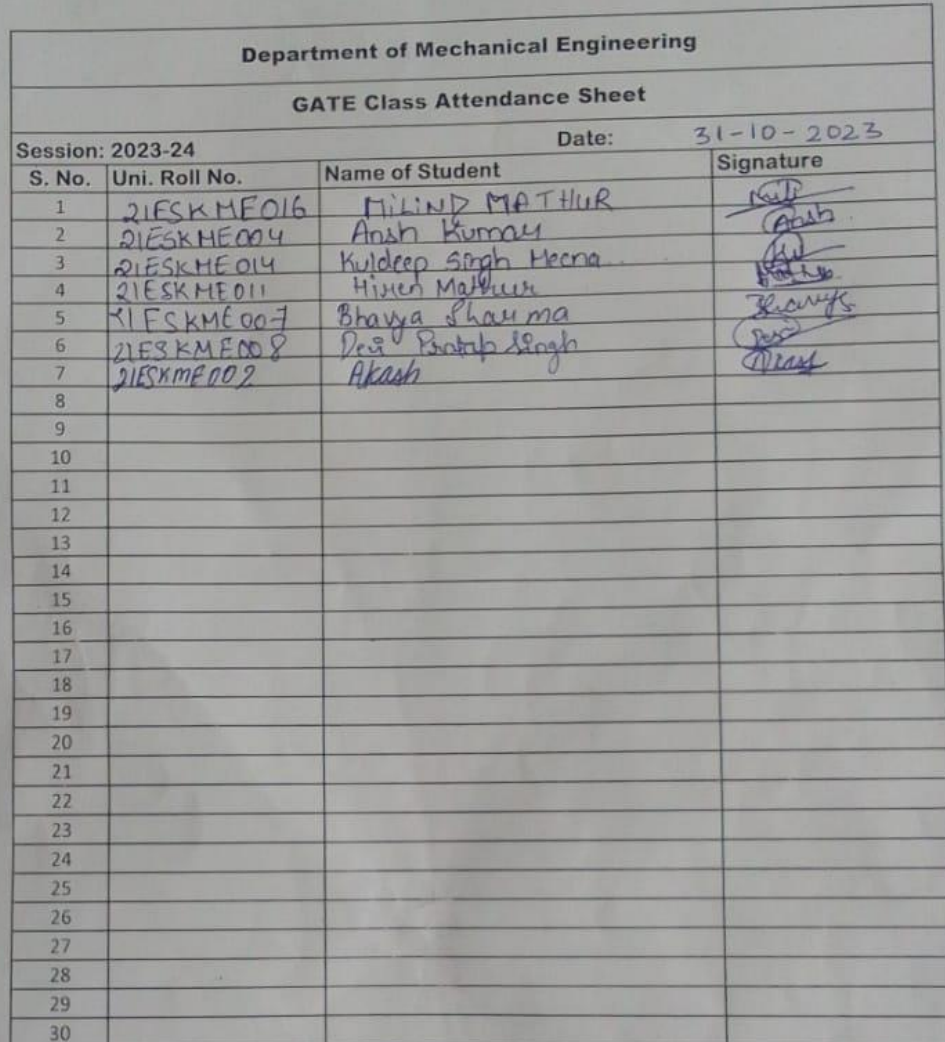 Department of Mechanical Engineering
GATE Class Attendance Sheet
Session: 2023-24 Date: 31-10-2023
S. No. Uni. Roll No. Name of Student Signature
1 21ESKME016 MILIND MATHUR
2 21ESKME004 Ansh Kumar Ansh
3 21ESKME014 Kuldeep Singh Meena
4 21ESKME011 Hiren Mathur
5 21ESKME007 Bhavya Sharma
6 21ESKME008 Devi Pratap Singh
7 21ESKME002 Akash
8
9
10
11
12
13
14
15
16
17
18
19
20
21
22
23
24
25
26
27
28
29
30